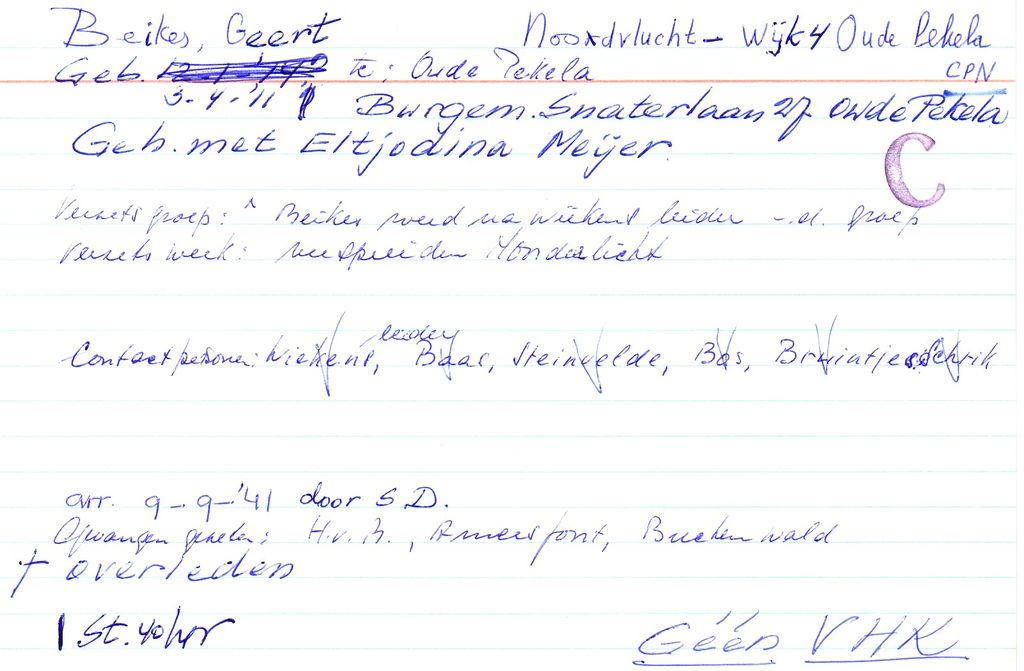 Beikes, Geert Noordvlucht - Wijk 4 Oude Pekela
Geb. te: Oude Pekela CPN
3-4-'11 Burgem. Snaterlaan 27 Oude Pekela
Geh. met Eltjodina Meijer.
C
Verzetsgroep: Beikes werd na Wiekens leider v.d. groep
Verzetswerk: verspreiden Noorderlicht
leider
Contactpersonen: Wiekens, Baas, Steinvelde, Bos, Bruintjes, Schrik
arr. 9-9-'41 door S.D.
Gevangen gezeten: H.v.B., Amersfoort, Buchenwald
† overleden
1 St. 40
Géén VHK